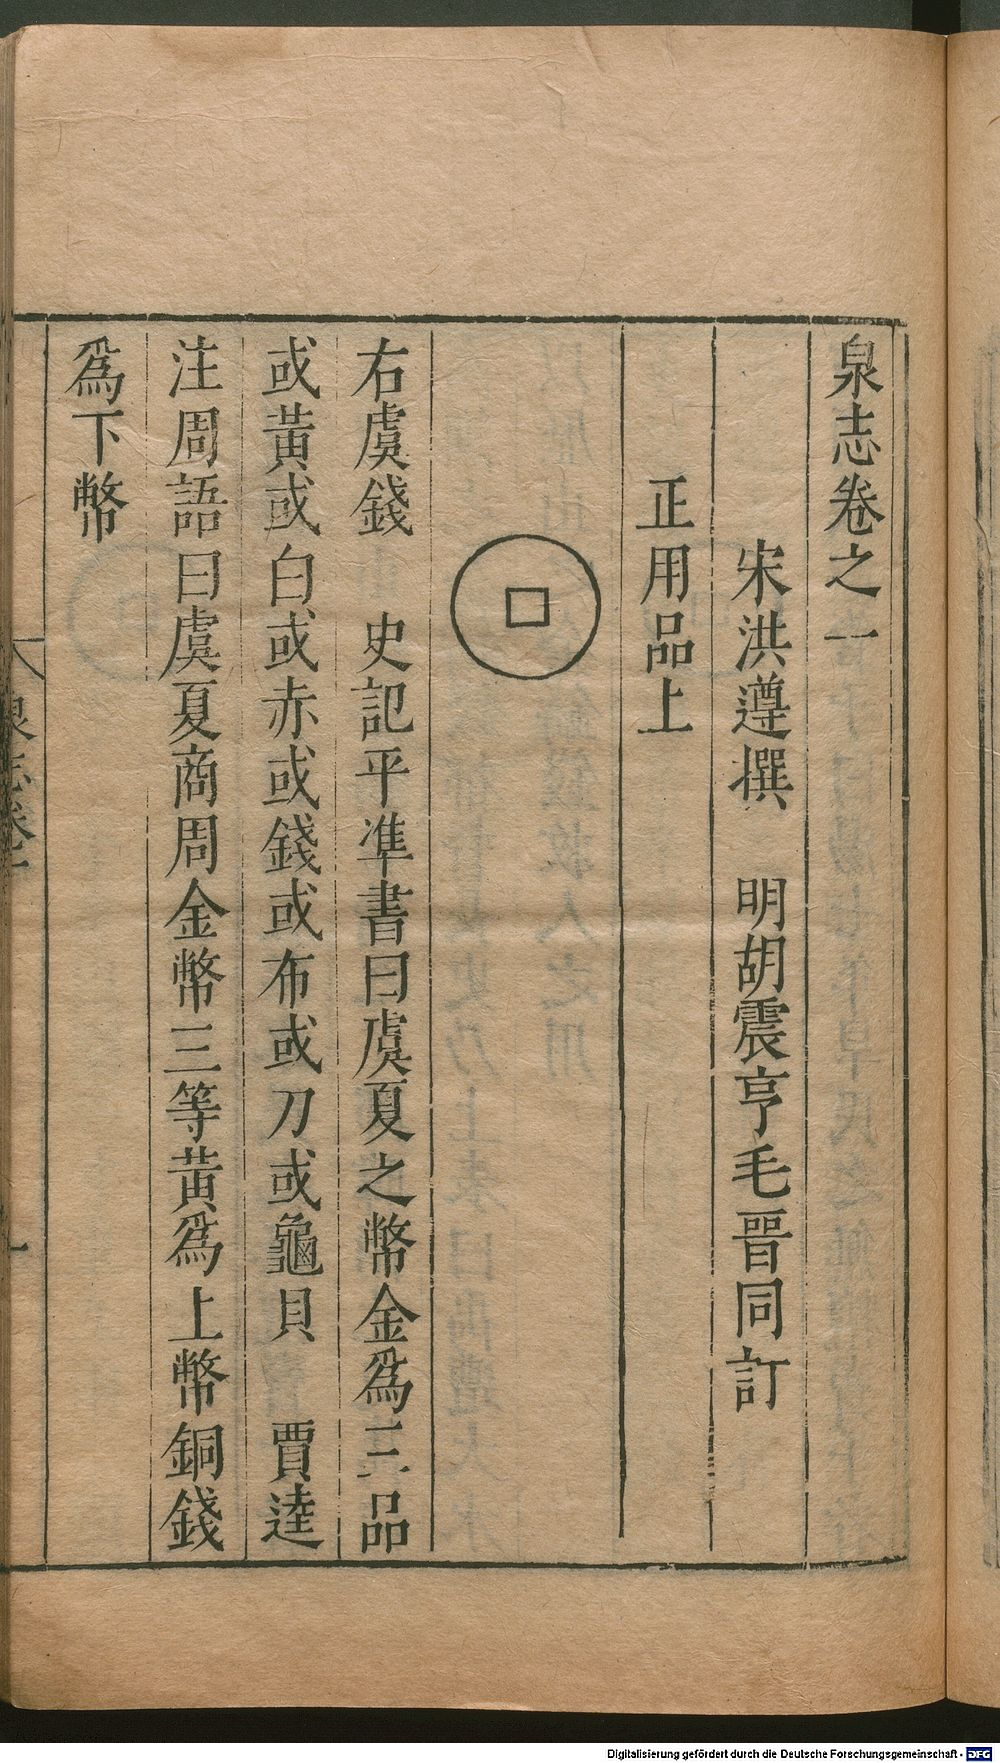 泉志卷之一
宋洪遵撰　明胡震亨毛晉同訂
正用品上
右虞錢　史記平準書曰虞夏之幣金爲三品
或黃或白或赤或錢或布或刀或龜貝　賈逵
注周語曰虞夏商周金幣三等黃爲上幣銅錢
爲下幣
泉志卷一
一
Digitalisierung gefördert durch die Deutsche Forschungsgemeinschaft - DFG